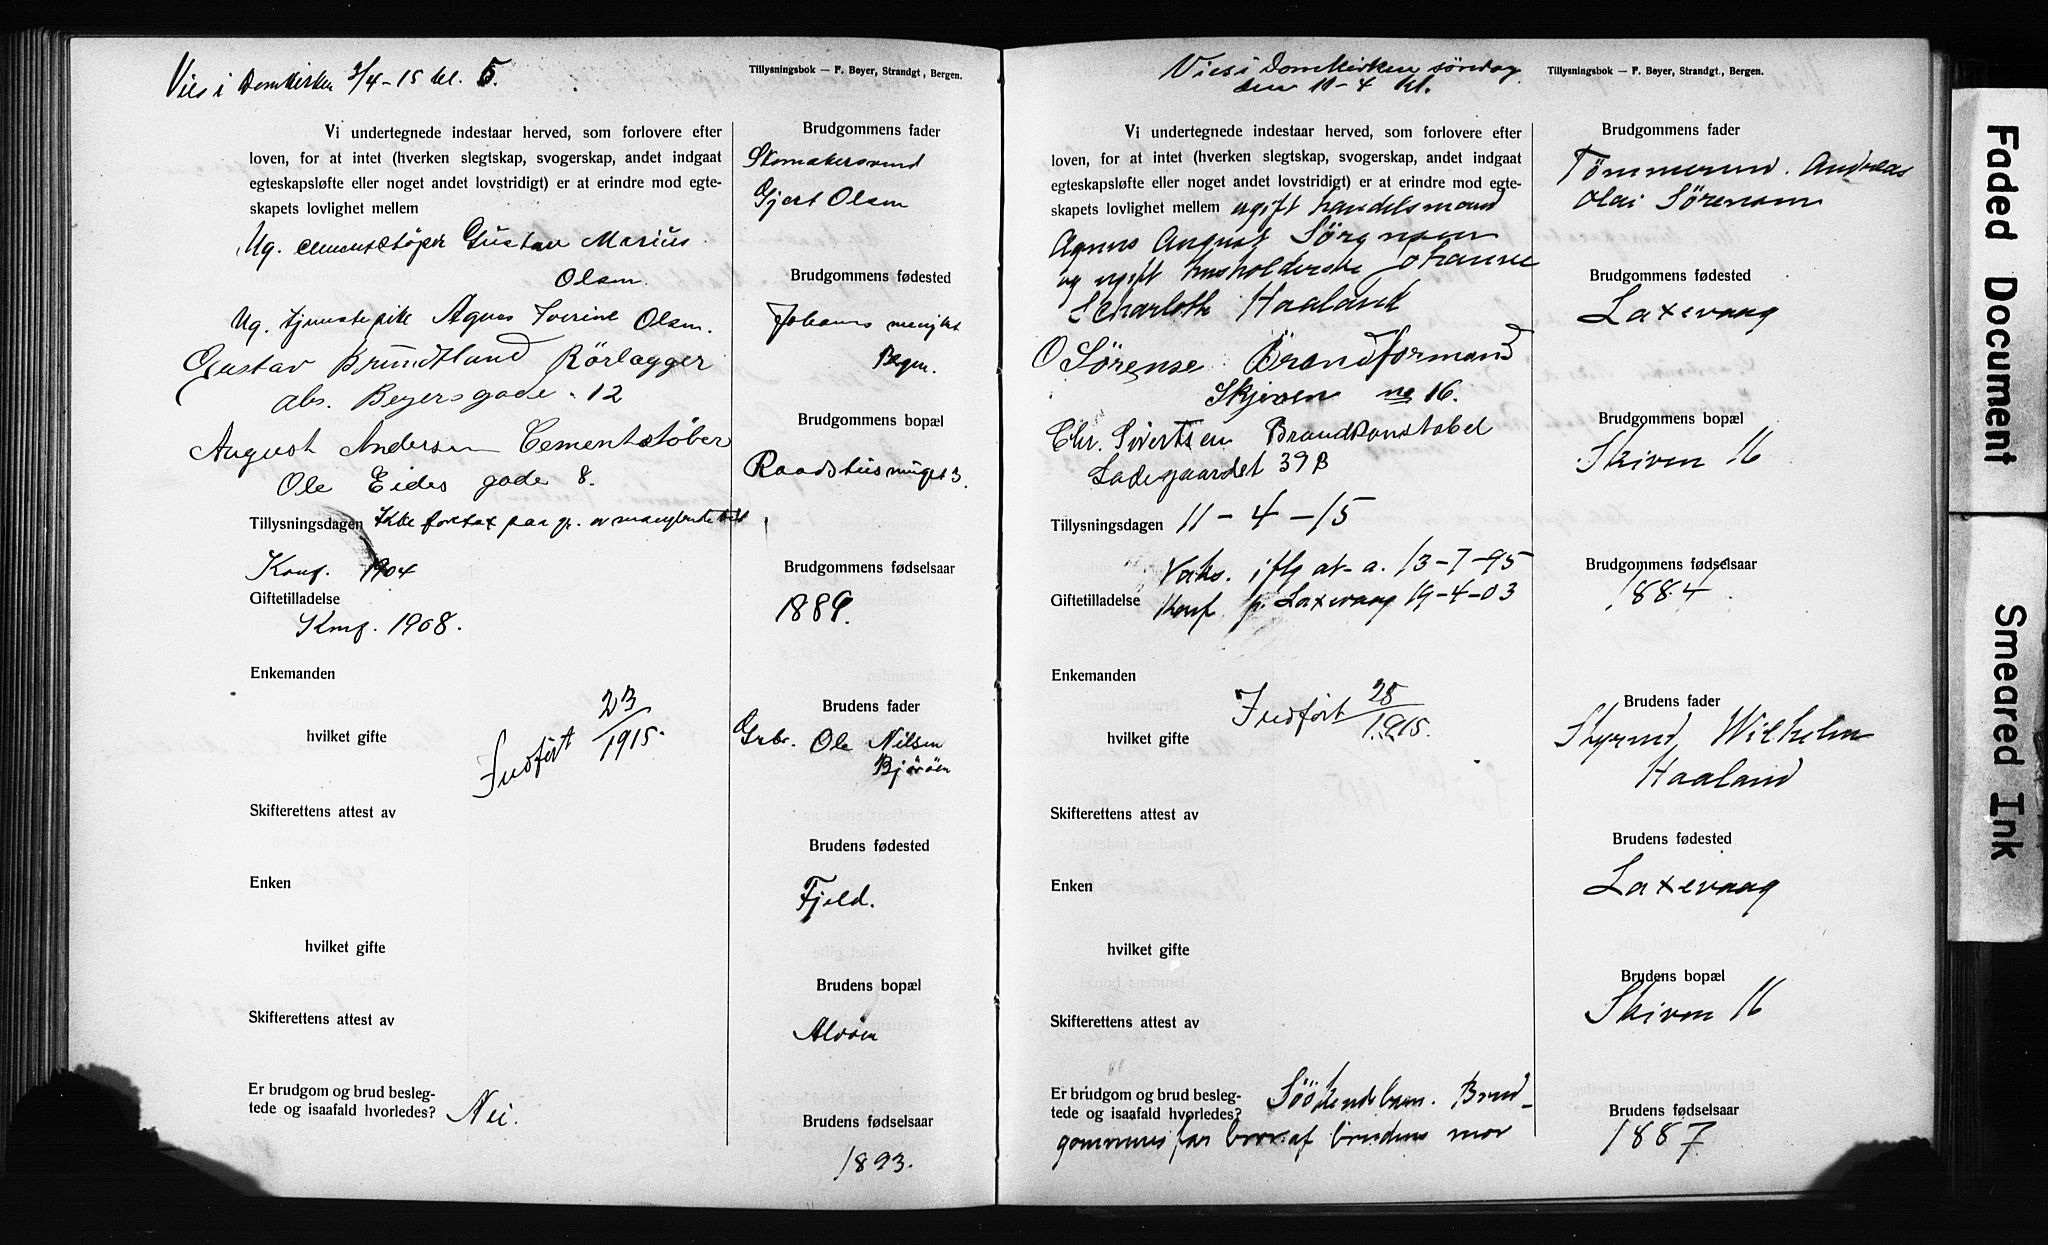 Vies i Domkirken 3/4-15 kl. 5.
Tillysningsbok — F. Beyer, Strandgt., Bergen.
Vi undertegnede indestaar herved, som forlovere efter
loven, for at intet (hverken slegtskap, svogerskap, andet indgaat
egteskapsløfte eller noget andet lovstridigt) er at erindre mod egte-
skapets lovlighet mellem
Ug. cementstøper Gustav Marius
Olsen.
Ug. tjenstepike Agnes Iverine Olsen.
Gustav Brundtlund Rörlægger
abs. Beyersgade 12
August Andersen Cementstøber
Ole Eides gade 8.
Tillysningsdagen Ikke foretat paa gr. av manglende tid
Konf. 1904
Giftetilladelse
Konf. 1908.
Enkemanden
hvilket gifte
Indført 23/1915.
Skifterettens attest av
Enken
hvilket gifte
Skifterettens attest av
Er brudgom og brud besleg-
tede og isaafald hvorledes? Nei.
Brudgommens fader
Skomakersvend
Gjert Olsen
Brudgommens fødested
Johannes menighet
Bergen.
Brudgommens bopæl
Raadstusmuget 3.
Brudgommens fødselsaar
1889.
Brudens fader
Grbr. Ole Nilsen
Bjørøen
Brudens fødested
Fjeld.
Brudens bopæl
Alvøen
Brudens fødselsaar
1893.
Vies i Domkirken søndag
den 11-4 kl.
Tillysningsbok — F. Beyer, Strandgt., Bergen.
Vi undertegnede indestaar herved, som forlovere efter
loven, for at intet (hverken slegtskap, svogerskap, andet indgaat
egteskapsløfte eller noget andet lovstridigt) er at erindre mod egte-
skapets lovlighet mellem ugift handelsmand
August Sörensen
og ugift husholderske Johanne
Scharloth Haaland
O Sörense Brandformand
Skjeven no 16.
Chr. Sivertsen Brandkonstabel
Ladegaardet 39 B
Tillysningsdagen 11-4-15
Vaks. iflg at-a. 13-7-95
Giftetilladelse Konf p. Laxevaag 19-4-03
Enkemanden
hvilket gifte
Indført 28/1915.
Skifterettens attest av
Enken
hvilket gifte
Skifterettens attest av
Er brudgom og brud besleg-
tede og isaafald hvorledes? Söskendebarn. Brud-
gommens far bror af brudens mor
Brudgommens fader
Tömmermd. Andreas
Olai Sörensen
Brudgommens fødested
Laxevaag
Brudgommens bopæl
Skiven 16
Brudgommens fødselsaar
1884
Brudens fader
Styrmd Wilhelm
Haaland
Brudens fødested
Laxevaag
Brudens bopæl
Skiven 16
Brudens fødselsaar
1887
Faded Document
Smeared Ink